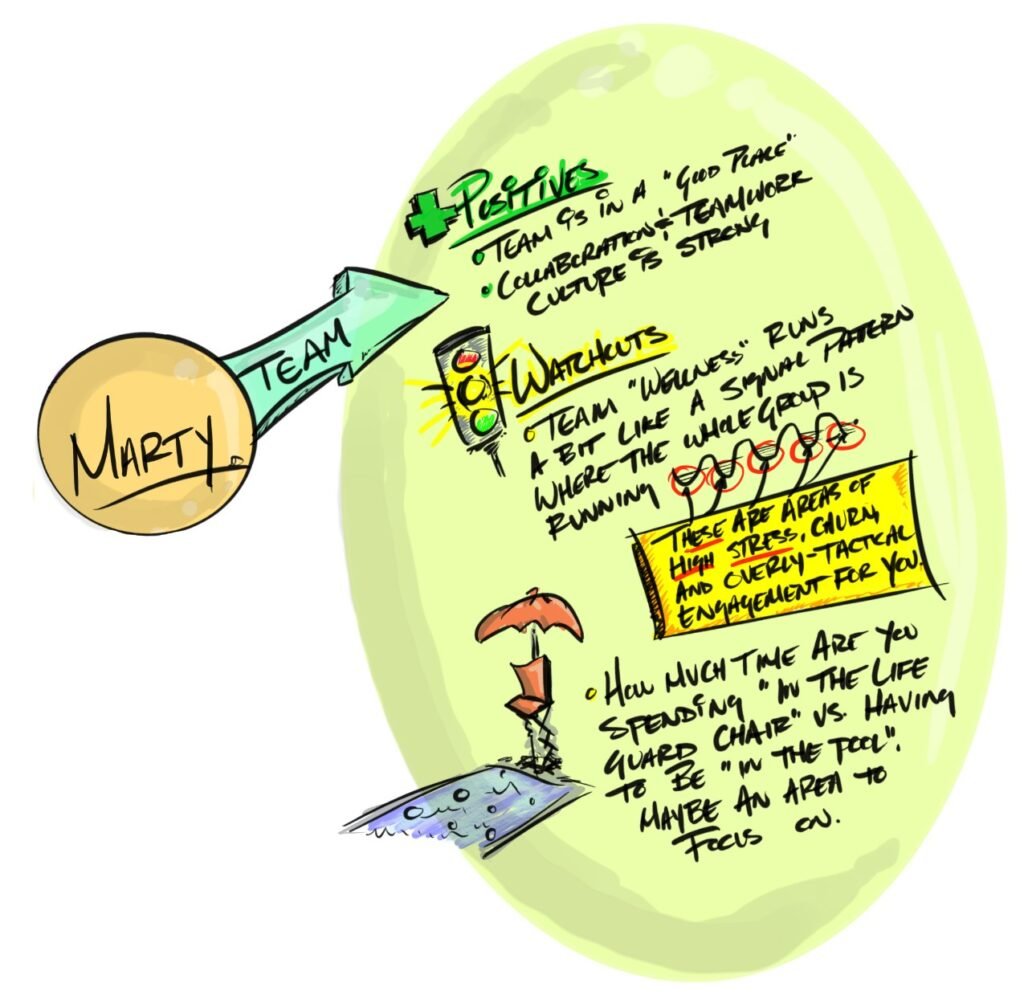 MARTY.
TEAM
POSITIVES
• TEAM IS IN A "GOOD PLACE"
• COLLABORATION & TEAMWORK
CULTURE IS STRONG
WATCHOUTS
• TEAM "WELLNESS" RUNS
A BIT LIKE A SIGNAL PATTERN
WHERE THE WHOLE GROUP IS
RUNNING
THESE ARE AREAS OF
HIGH STRESS, CHURN,
AND OVERLY-TACTICAL
ENGAGEMENT FOR YOU.
• HOW MUCH TIME ARE YOU
SPENDING "IN THE LIFE
GUARD CHAIR" VS. HAVING
TO BE "IN THE POOL".
MAYBE AN AREA TO
FOCUS ON.